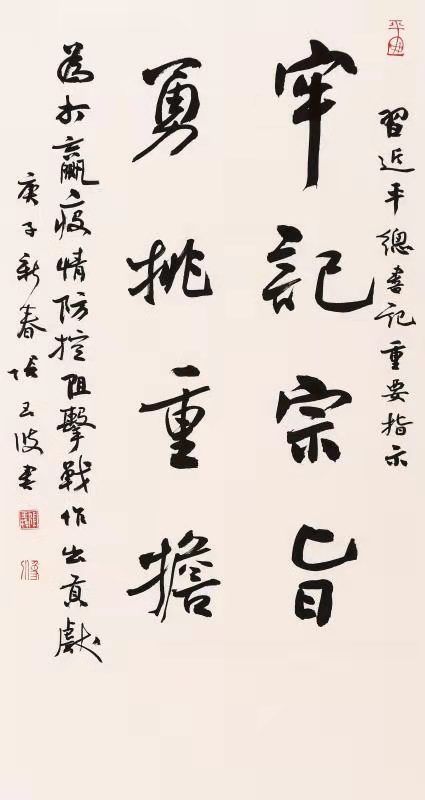 習近平總書記重要指示
牢記宗旨
勇挑重擔
為打贏疫情防控阻擊戰作出貢獻
庚子新春張玉波書